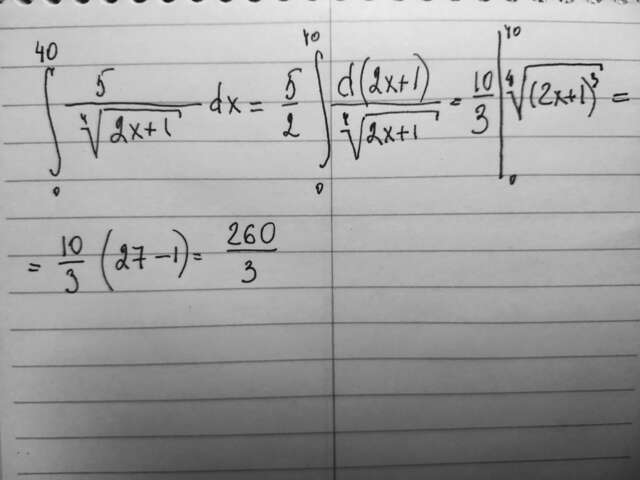 ∫₀⁴⁰ 5/∜(2x+1) dx = 5/2 ∫₀⁴⁰ d(2x+1)/∜(2x+1) = 10/3 |₀⁴⁰ ∜((2x+1)³) =
= 10/3 (27-1) = 260/3